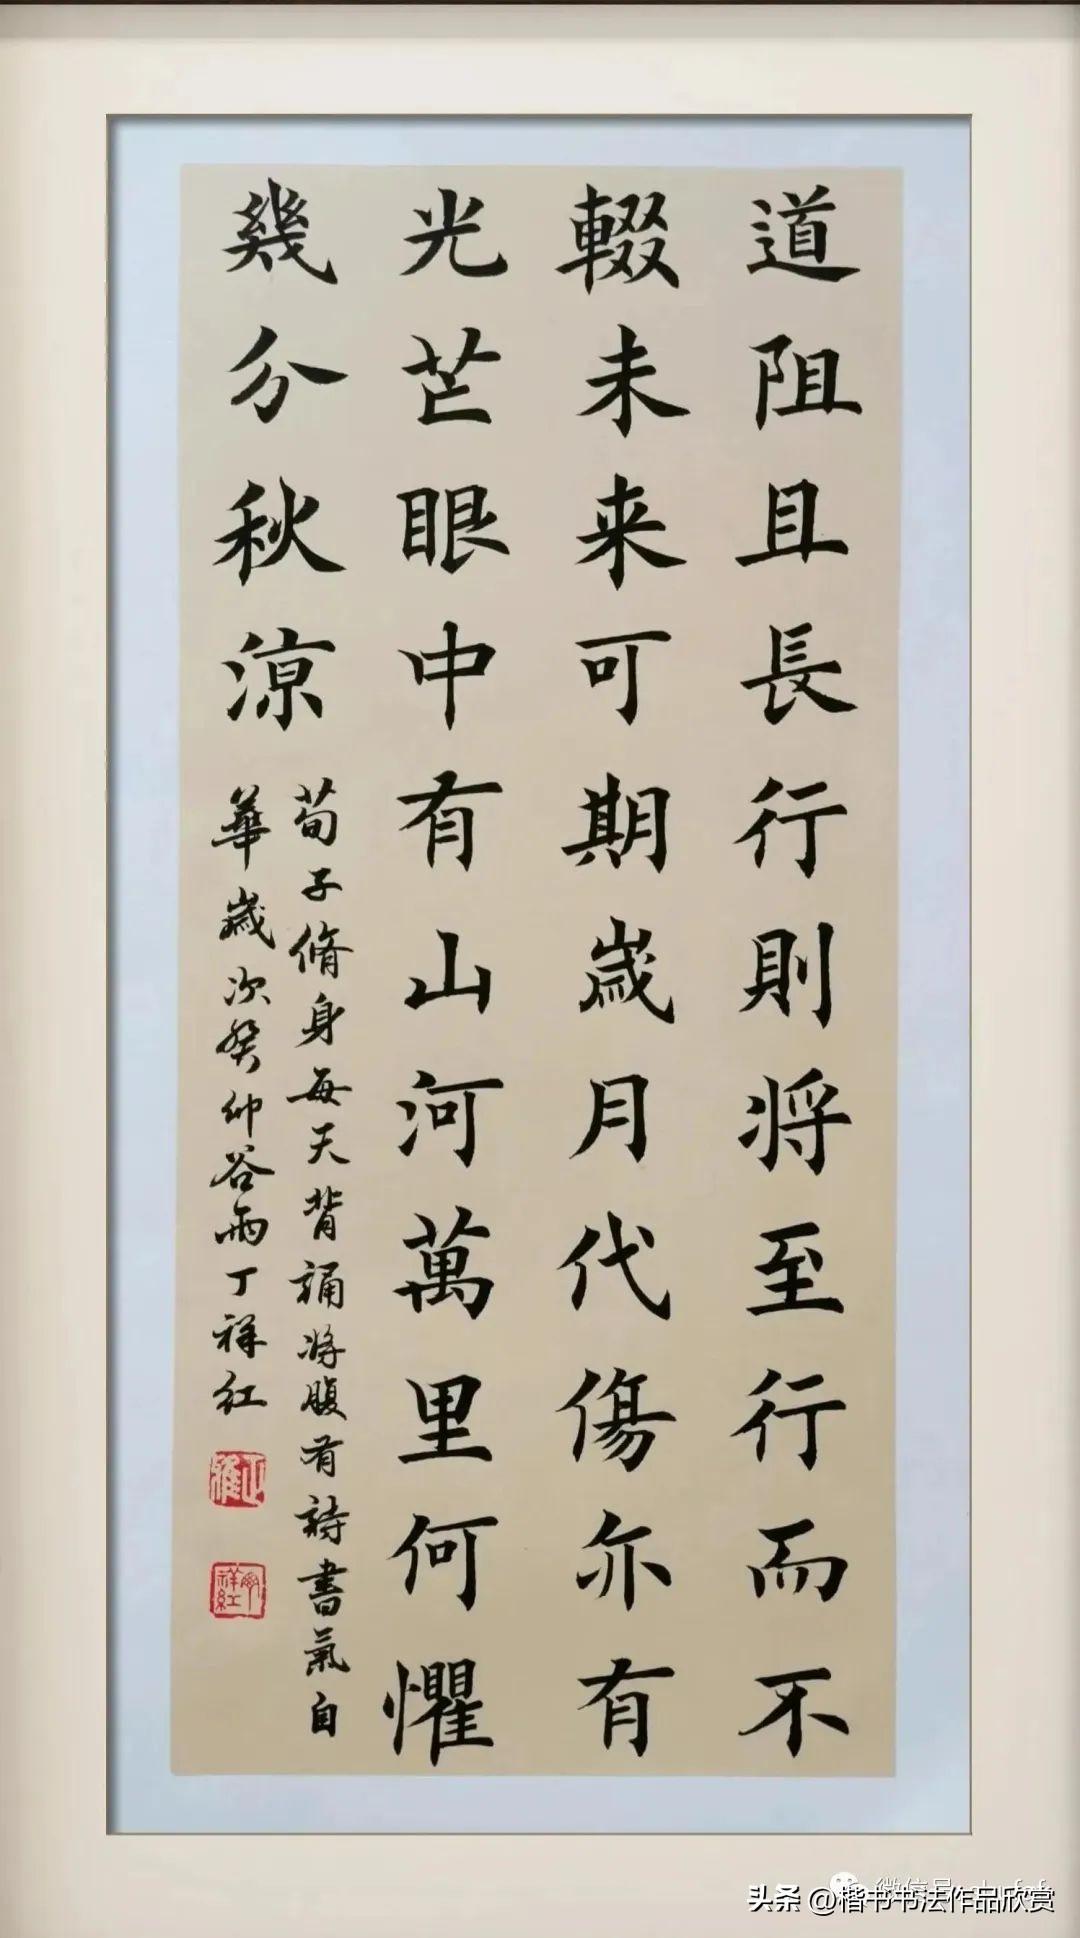 道阻且長行則将至行而不
輟未来可期歲月代傷亦有
光芒眼中有山河萬里何懼
幾分秋涼
荀子脩身每天背誦将腹有詩書氣自
華歲次癸卯谷雨丁祥红
头条 @楷书书法作品欣赏